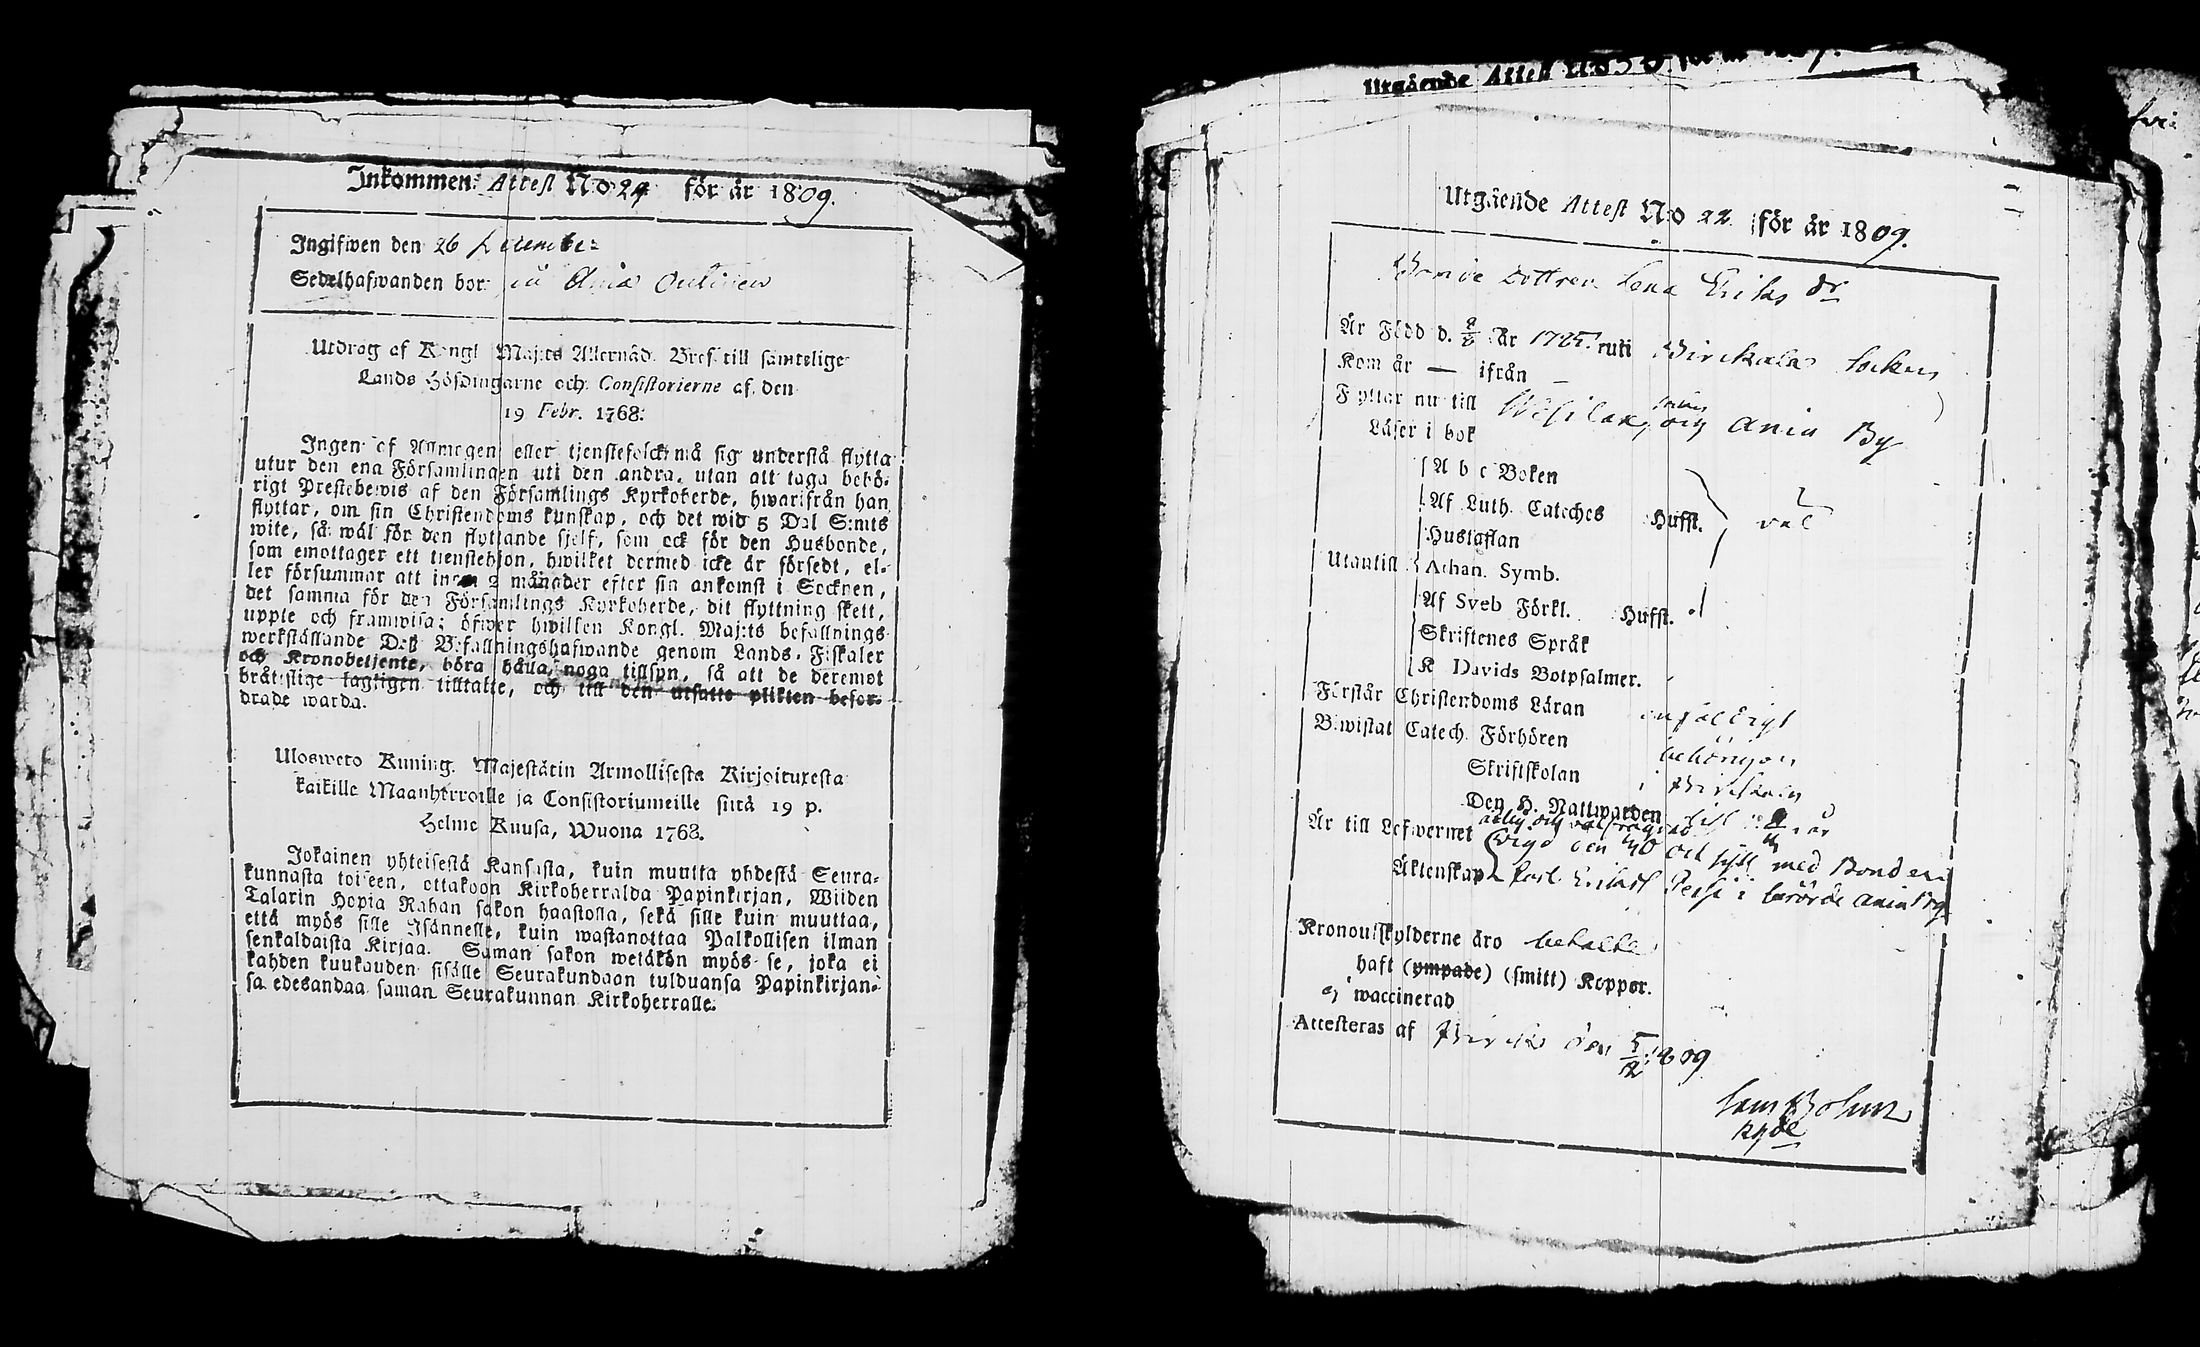 Inkommen Attest No 24 för år 1809.
Ingifwen den 26 December
Sedelhafwanden bor på Ania
Utdrag af Kongl Maj:ts Allernåd. Bref till samtelige
Lands Höfdingarne och Consistorierne af den
19 Febr. 1768:
Ingen af Allmogen eller tjenstefolck må sig understå flytta
utur den ena Församlingen uti den andra, utan att taga behö-
rigt Prestebewis af den Församlings Kyrkoherde, hwarifrån han
flyttar, om sin Christendoms kunskap, och det wid 5 Dal S:mts
wite, så wäl för den flyttande sjelf, som ock för den Husbonde,
som emottager ett tienstehjon, hwilket dermed icke är försedt, el-
ler försummar att inom 2 månader efter sin ankomst i Socknen,
det samma för den Församlings Kyrkoherde, dit flyttning skett,
upple och framwisa; öfwer hwilken Kongl. Maj:ts befallnings
werkställande Deß Befallningshafwande genom Lands-Fiskaler
och Kronobetjente, böra hålla noga tillsyn, så att de deremot
brätslige lagligen tilltalte, och till den utsatte plikten befor-
drade warda.
Ulosweto Kuning. Majestätin Armollisesta Kirjoituxesta
kaikille Maanherroille ja Consistoriumeille siitä 19 p.
Helme Kuusa, Wuona 1768.
Jokainen yhteisestä Kansasta, kuin muutta yhdestä Seura-
kunnasta toiseen, ottakoon Kirkoherralda Papinkirjan, Wiiden
Talarin Hopia Rahan sakon haastolla, sekä sille kuin muuttaa,
että myös sille Isännelle, kuin wastanottaa Palkollisen ilman
senkaldaista Kirjaa. Saman sakon wetäkön myös se, joka ei
kahden kuukauden sisälle Seurakundaan tulduansa Papinkirjan-
sa edesandaa saman Seurakunnan Kirkoherralle.
Utgående Attest No
Utgående Attest No 22 för år 1809.
Bonde dottren Lena Eriks dr
Är Född d. år 1785 uti Birckala Socken
Kom år — ifrån —
Flyttar nu till Wesilax, och Ania By
Läser i bok
A b c Boken
Af Luth. Cateches Hufst. väl
Hustaflan
Utantill Athan. Symb.
Af Sveb Förkl. Hufst.
Skriftenes Språk
K Davids Botpsalmer.
Förstår Christendoms Läran enfaldigt
Biwistat Catech. Förhören behörigen
Skriftskolan i Birckala
Den H. Nattwarden sist i år
Är till Lefwernet ärlig och
Äktenskap med Bonden
Carl Eriksson i berörde Ania By
Kronoutskylderne äro betalte
haft (ympade) (smitt) Koppor.
ej waccinerad
Attesteras af Birckala den 5/12 1809
Sam Bohm